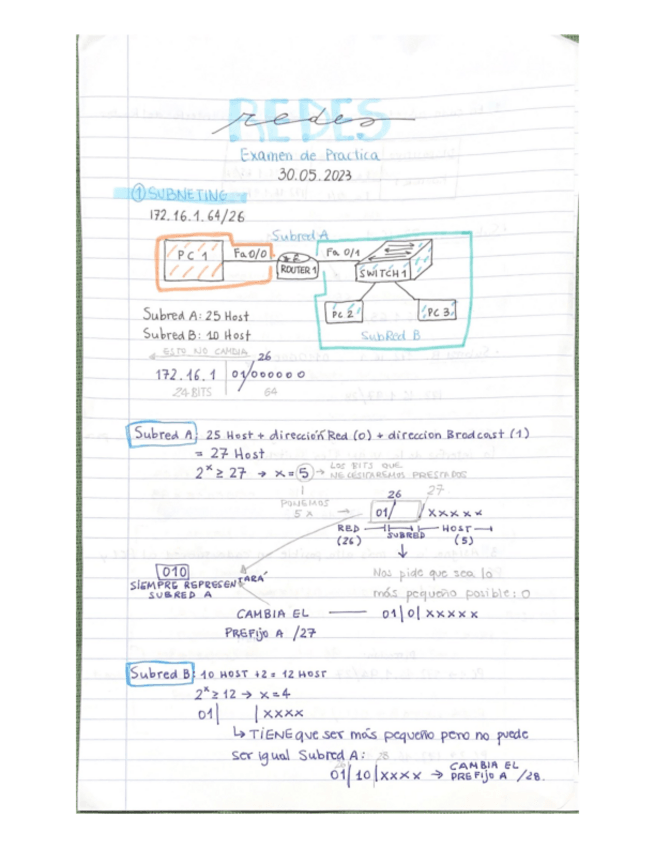 REDES
redes
Examen de Practica
30.05.2023
① SUBNETING
172.16.1.64/26
Subred A
PC 1 Fa 0/0 ROUTER 1 Fa 0/1 SWITCH 1
PC 2 PC 3
SubRed B
Subred A: 25 Host
Subred B: 10 Host
ESTO NO CAMBIA 26
172.16.1 | 01/000000
24 BITS 64
Subred A: 25 Host + dirección Red (0) + direccion Brodcast (1)
= 27 Host
2^x ≥ 27 → x = 5 → LOS BITS QUE
NECESITAREMOS PRESTADOS
PONEMOS
5 X →
26 27
01/ /xxxxx
RED SUBRED HOST
(26) (5)
010
SIEMPRE REPRESENTARÁ
SUBRED A
Nos pide que sea lo
más pequeño posible: 0
CAMBIA EL
PREFIJO A /27
01|0|xxxxx
Subred B: 10 HOST +2 = 12 HOST
2^x ≥ 12 → x = 4
01| |xxxx
↳ TIENE que ser más pequeño pero no puede
ser igual Subred A:
26 28
01|10|xxxx → CAMBIA EL
PREFIJO A /28.